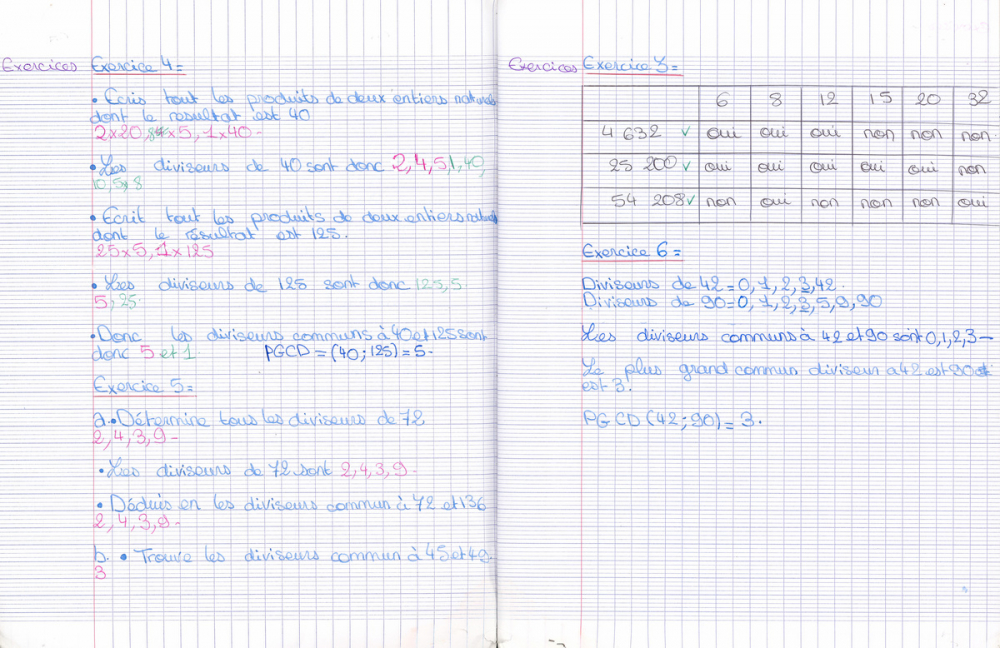 Exercices Exercice 4=
• Ecris tout les produits de deux entiers naturels
dont le resultat est 40
2x20, x5, 1x40-
• Les diviseurs de 40 sont donc 2,4,5,1,40,
10,5,8
• Ecrit tout les produits de deux entiers naturels
dont le résultat est 125.
25x5, 1x125
• Les diviseurs de 125 sont donc 125,5
5, 25.
• Donc les diviseurs communs à 40 et 125 sont
donc 5 et 1. PGCD = (40;125) = 5-
Exercice 5=
a. • Détermine tous les diviseurs de 72
2,4,3,9-
• Les diviseurs de 72 sont 2,4,3,9-
• Déduis en les diviseurs commun à 72 et 136
2,4,3,9-
b. • Trouve les diviseurs commun à 45 et 49.
3
Exercices Exercice 3=
6 8 12 15 20 32
4 632 ✓ oui oui oui non non non
25 200 ✓ oui oui oui oui oui non
54 208 ✓ non oui non non non oui
Exercice 6=
Diviseurs de 42=0,1,2,3,42.
Diviseurs de 90=0,1,2,3,5,9,90
Les diviseurs communs à 42 et 90 sont 0,1,2,3-
Le plus grand commun diviseur a 42 est 90
est 3.
PGCD (42;90) = 3.